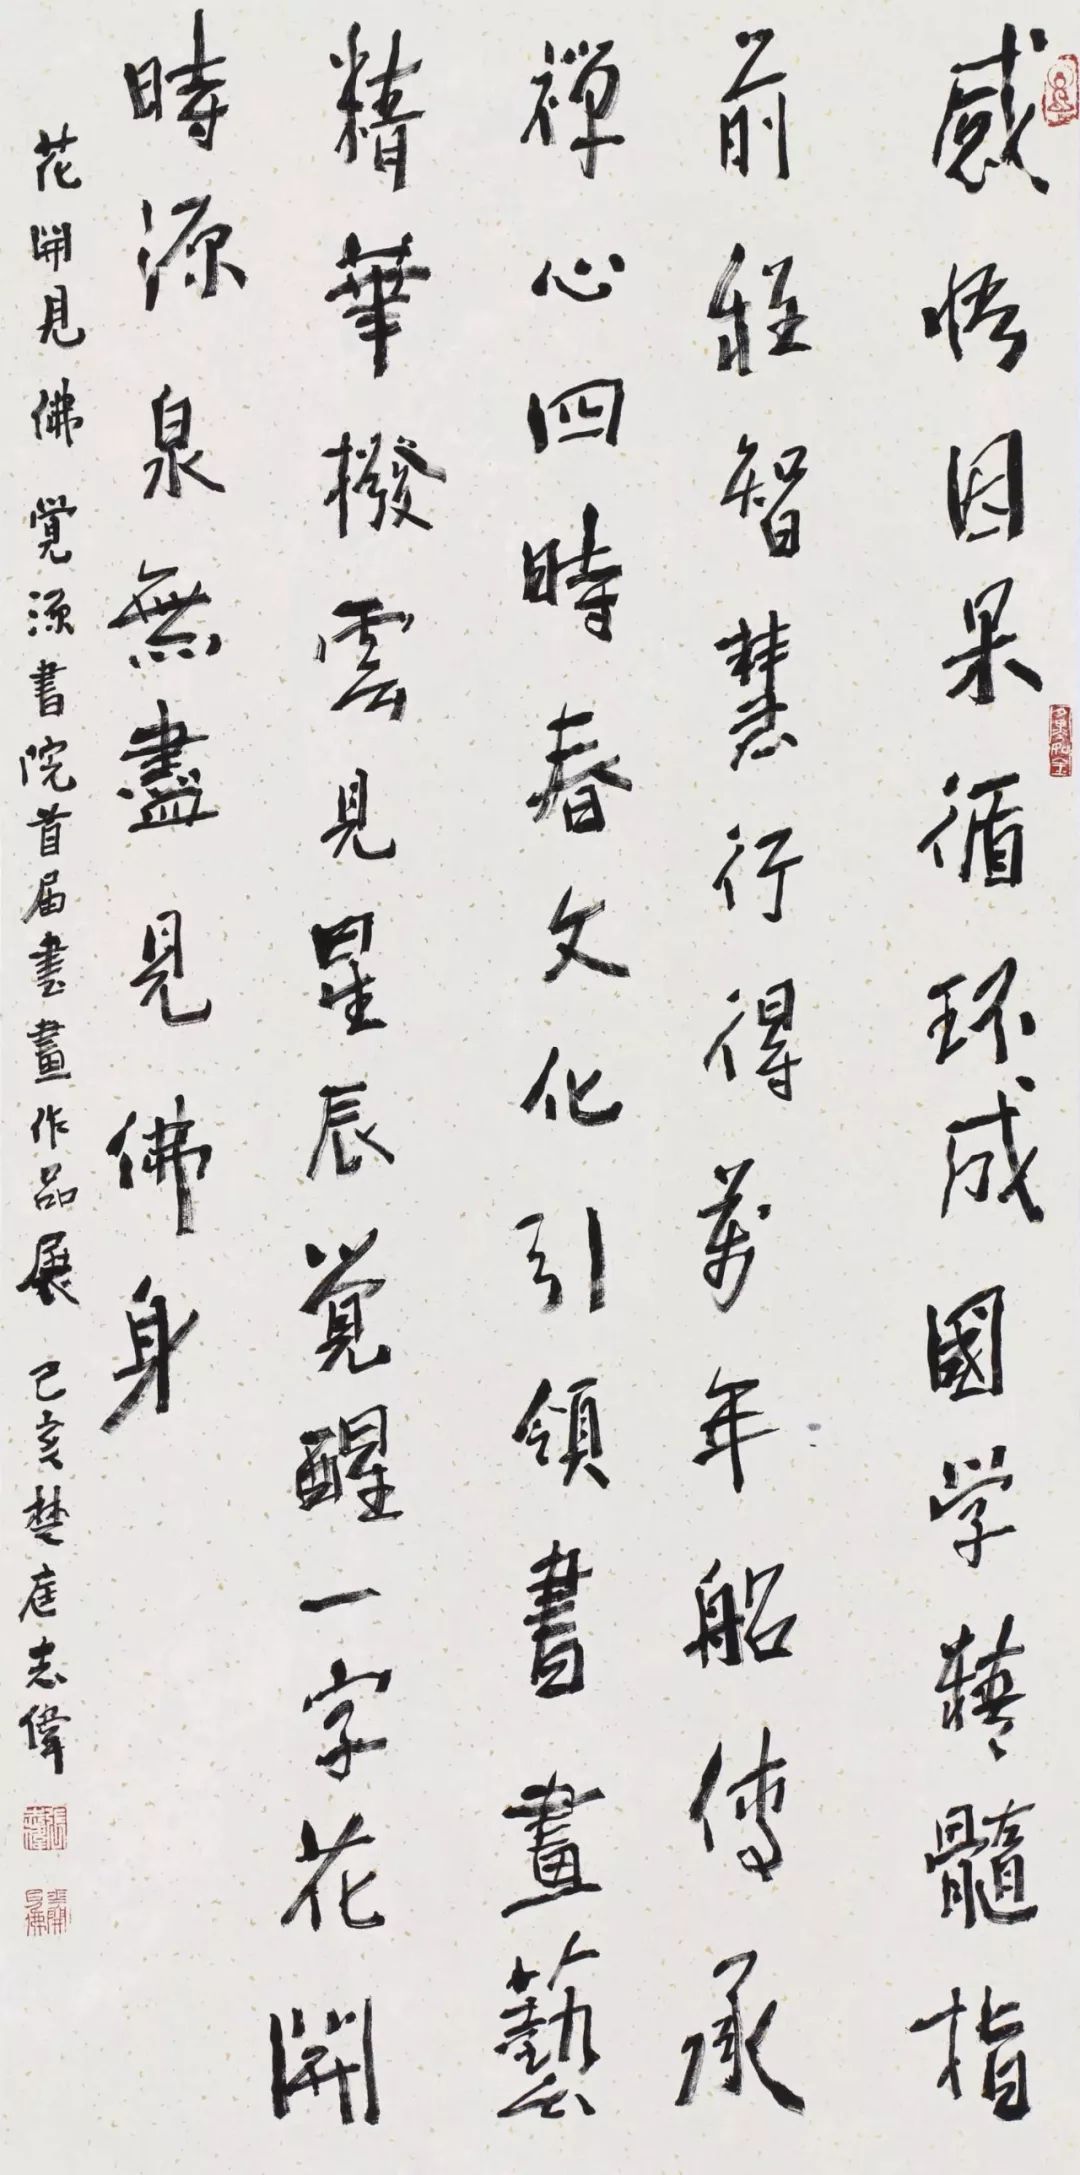 感悟因果循环成國学精髓指
前程智慧行得萬年船傳承
禪心四時春文化引領書畫藝
精華撥雲見星辰覺醒一字花開
時源泉無盡見佛身
花開見佛 覺源書院首届書畫作品展 己亥楚庭志偉